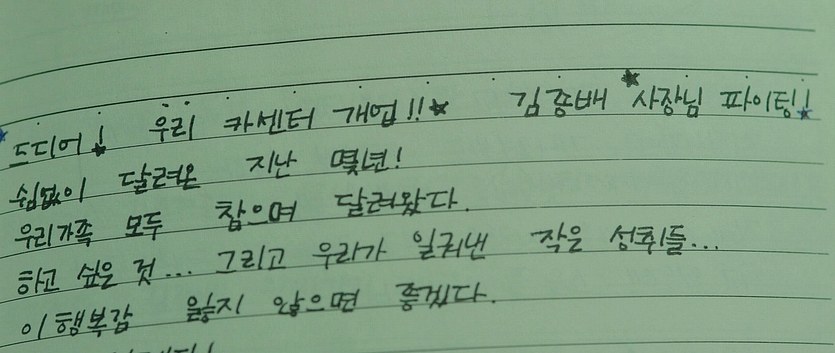 드디어! 우리 카센터 개업!!★ 김종배 ★사장님 파이팅!★
쉼없이 달려온 지난 몇년!
우리가족 모두 참으며 달려왔다.
하고 싶은 것... 그리고 우리가 일궈낸 작은 성취들...
이 행복감 잃지 않으면 좋겠다.